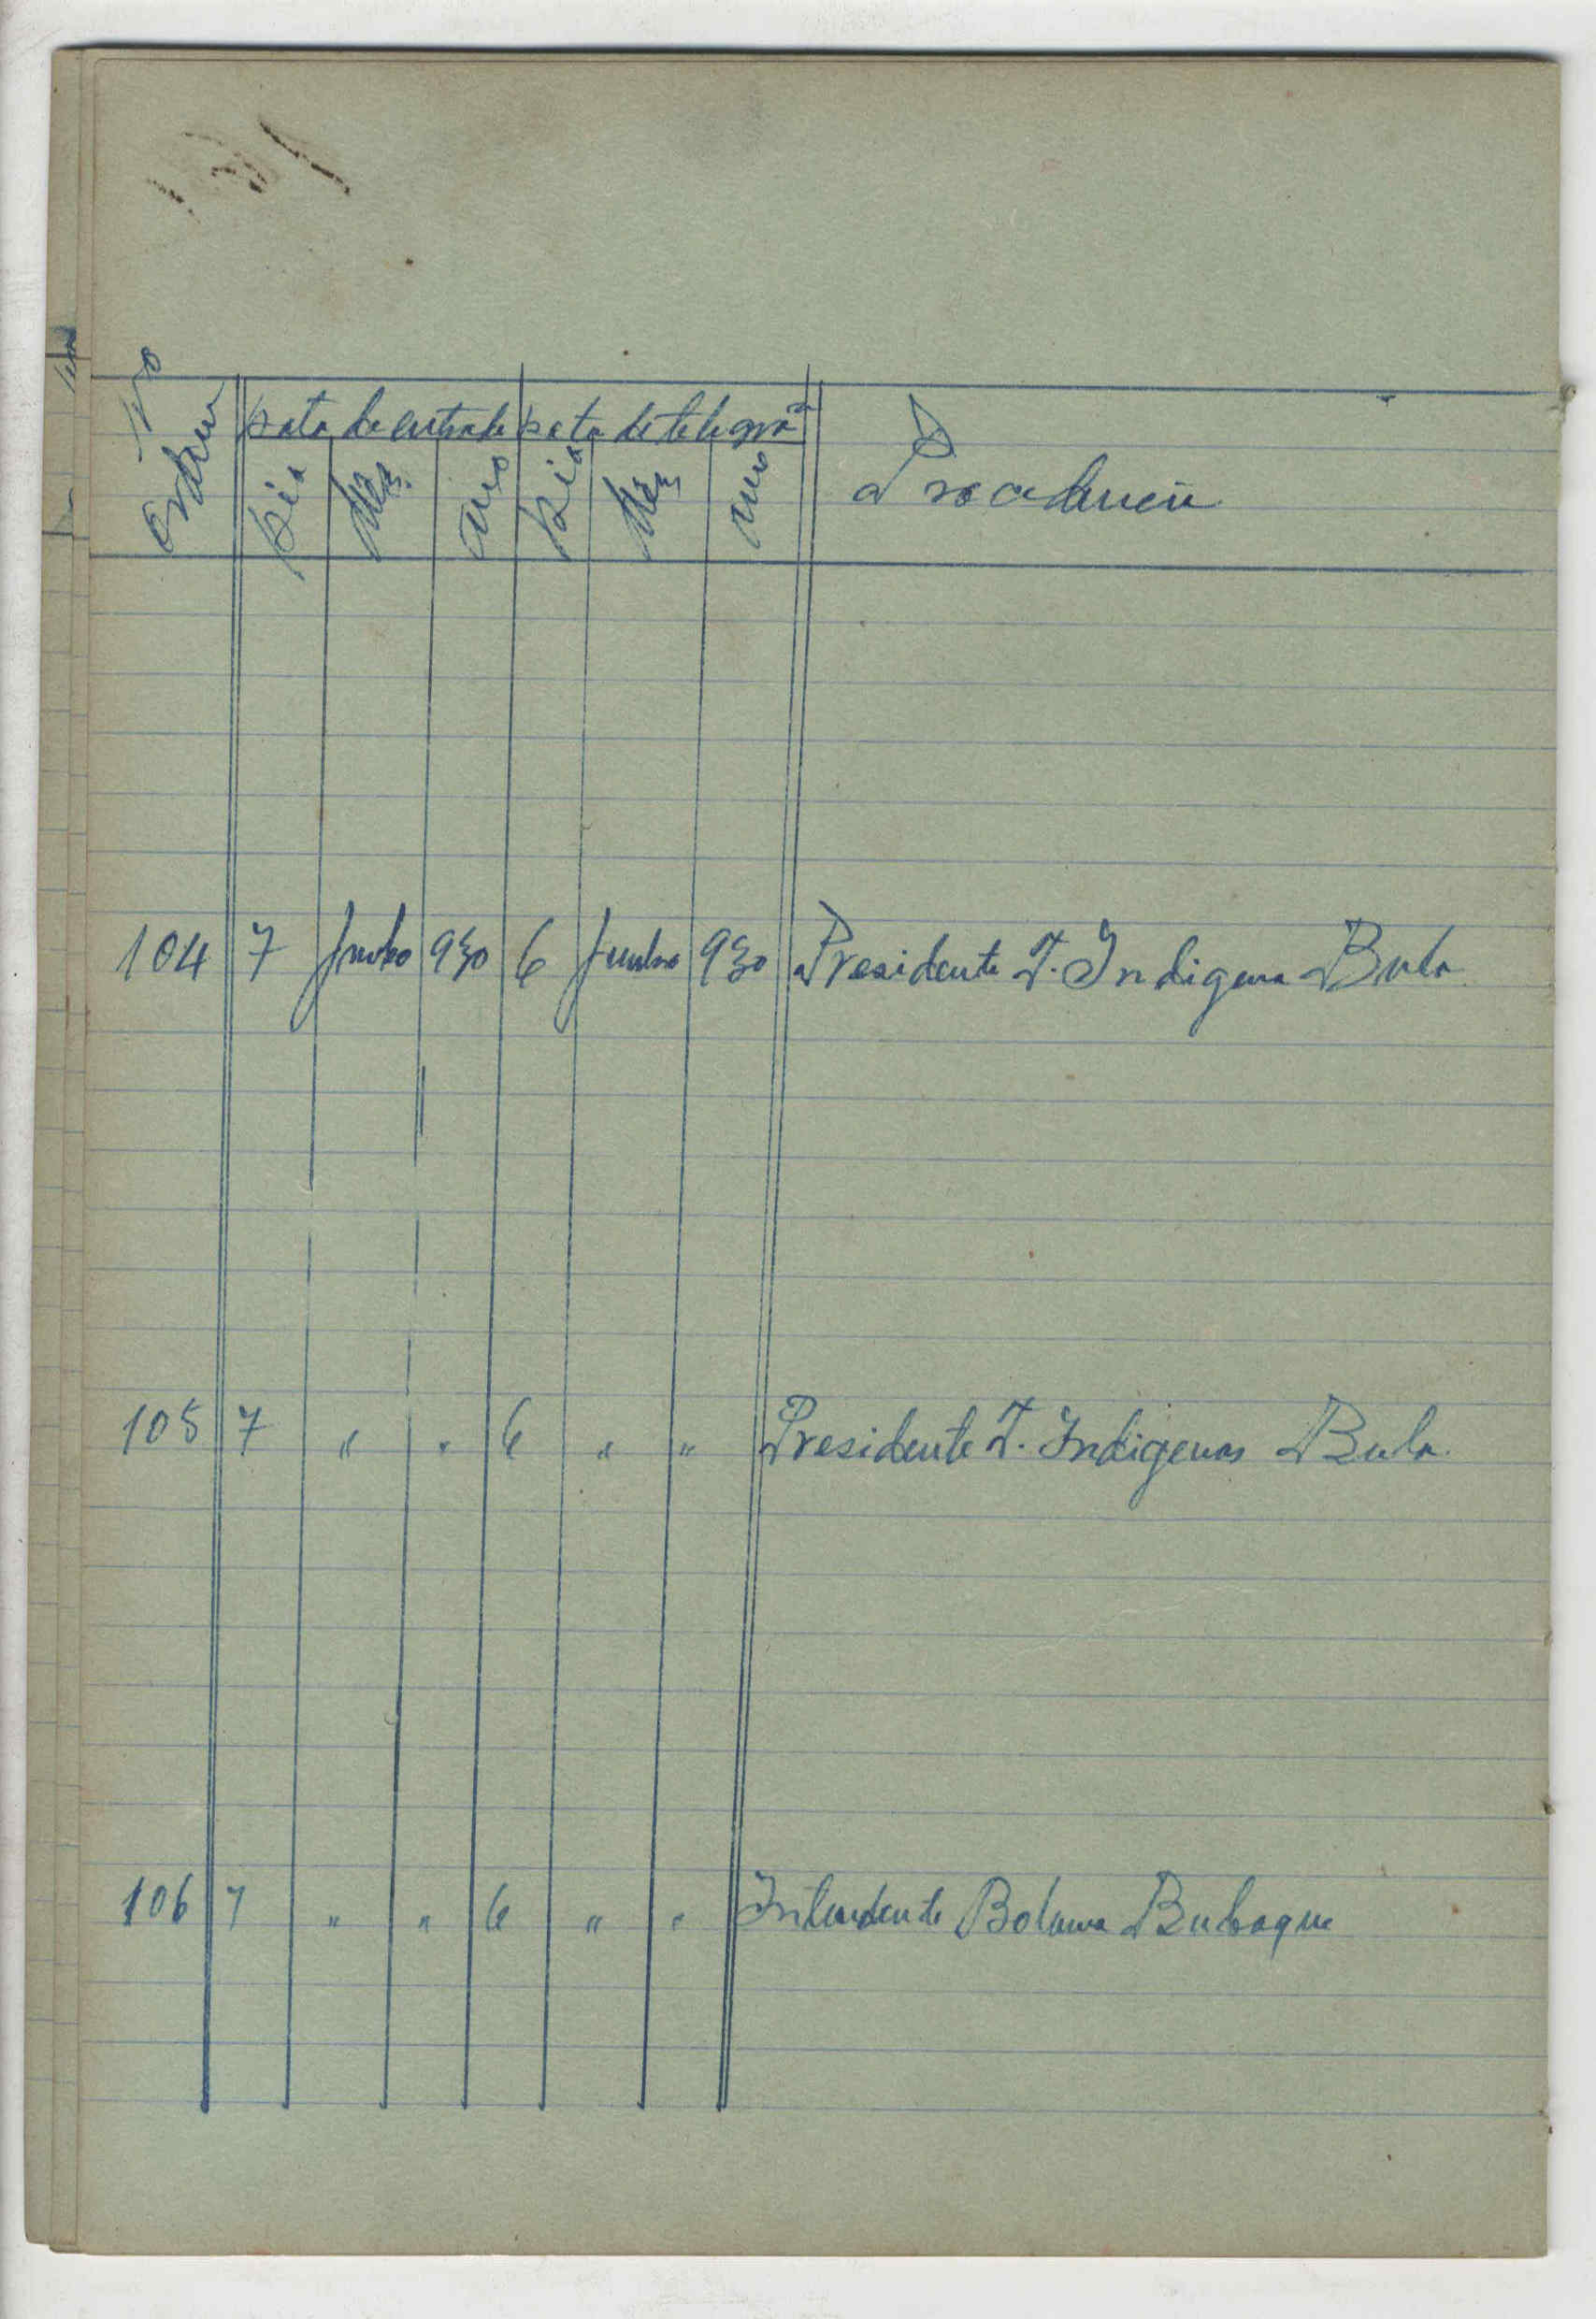 No Ordem
Data de entrada Data de telegra
Dia Mês Ano Dia Mês Ano Procedencia
104 7 Junho 930 6 Junho 930 Presidente T. Indigena Bula
105 7 " " 6 " " Presidente T. Indigenas Bula
106 7 " " 6 " " Intendente Bolama Bubaque